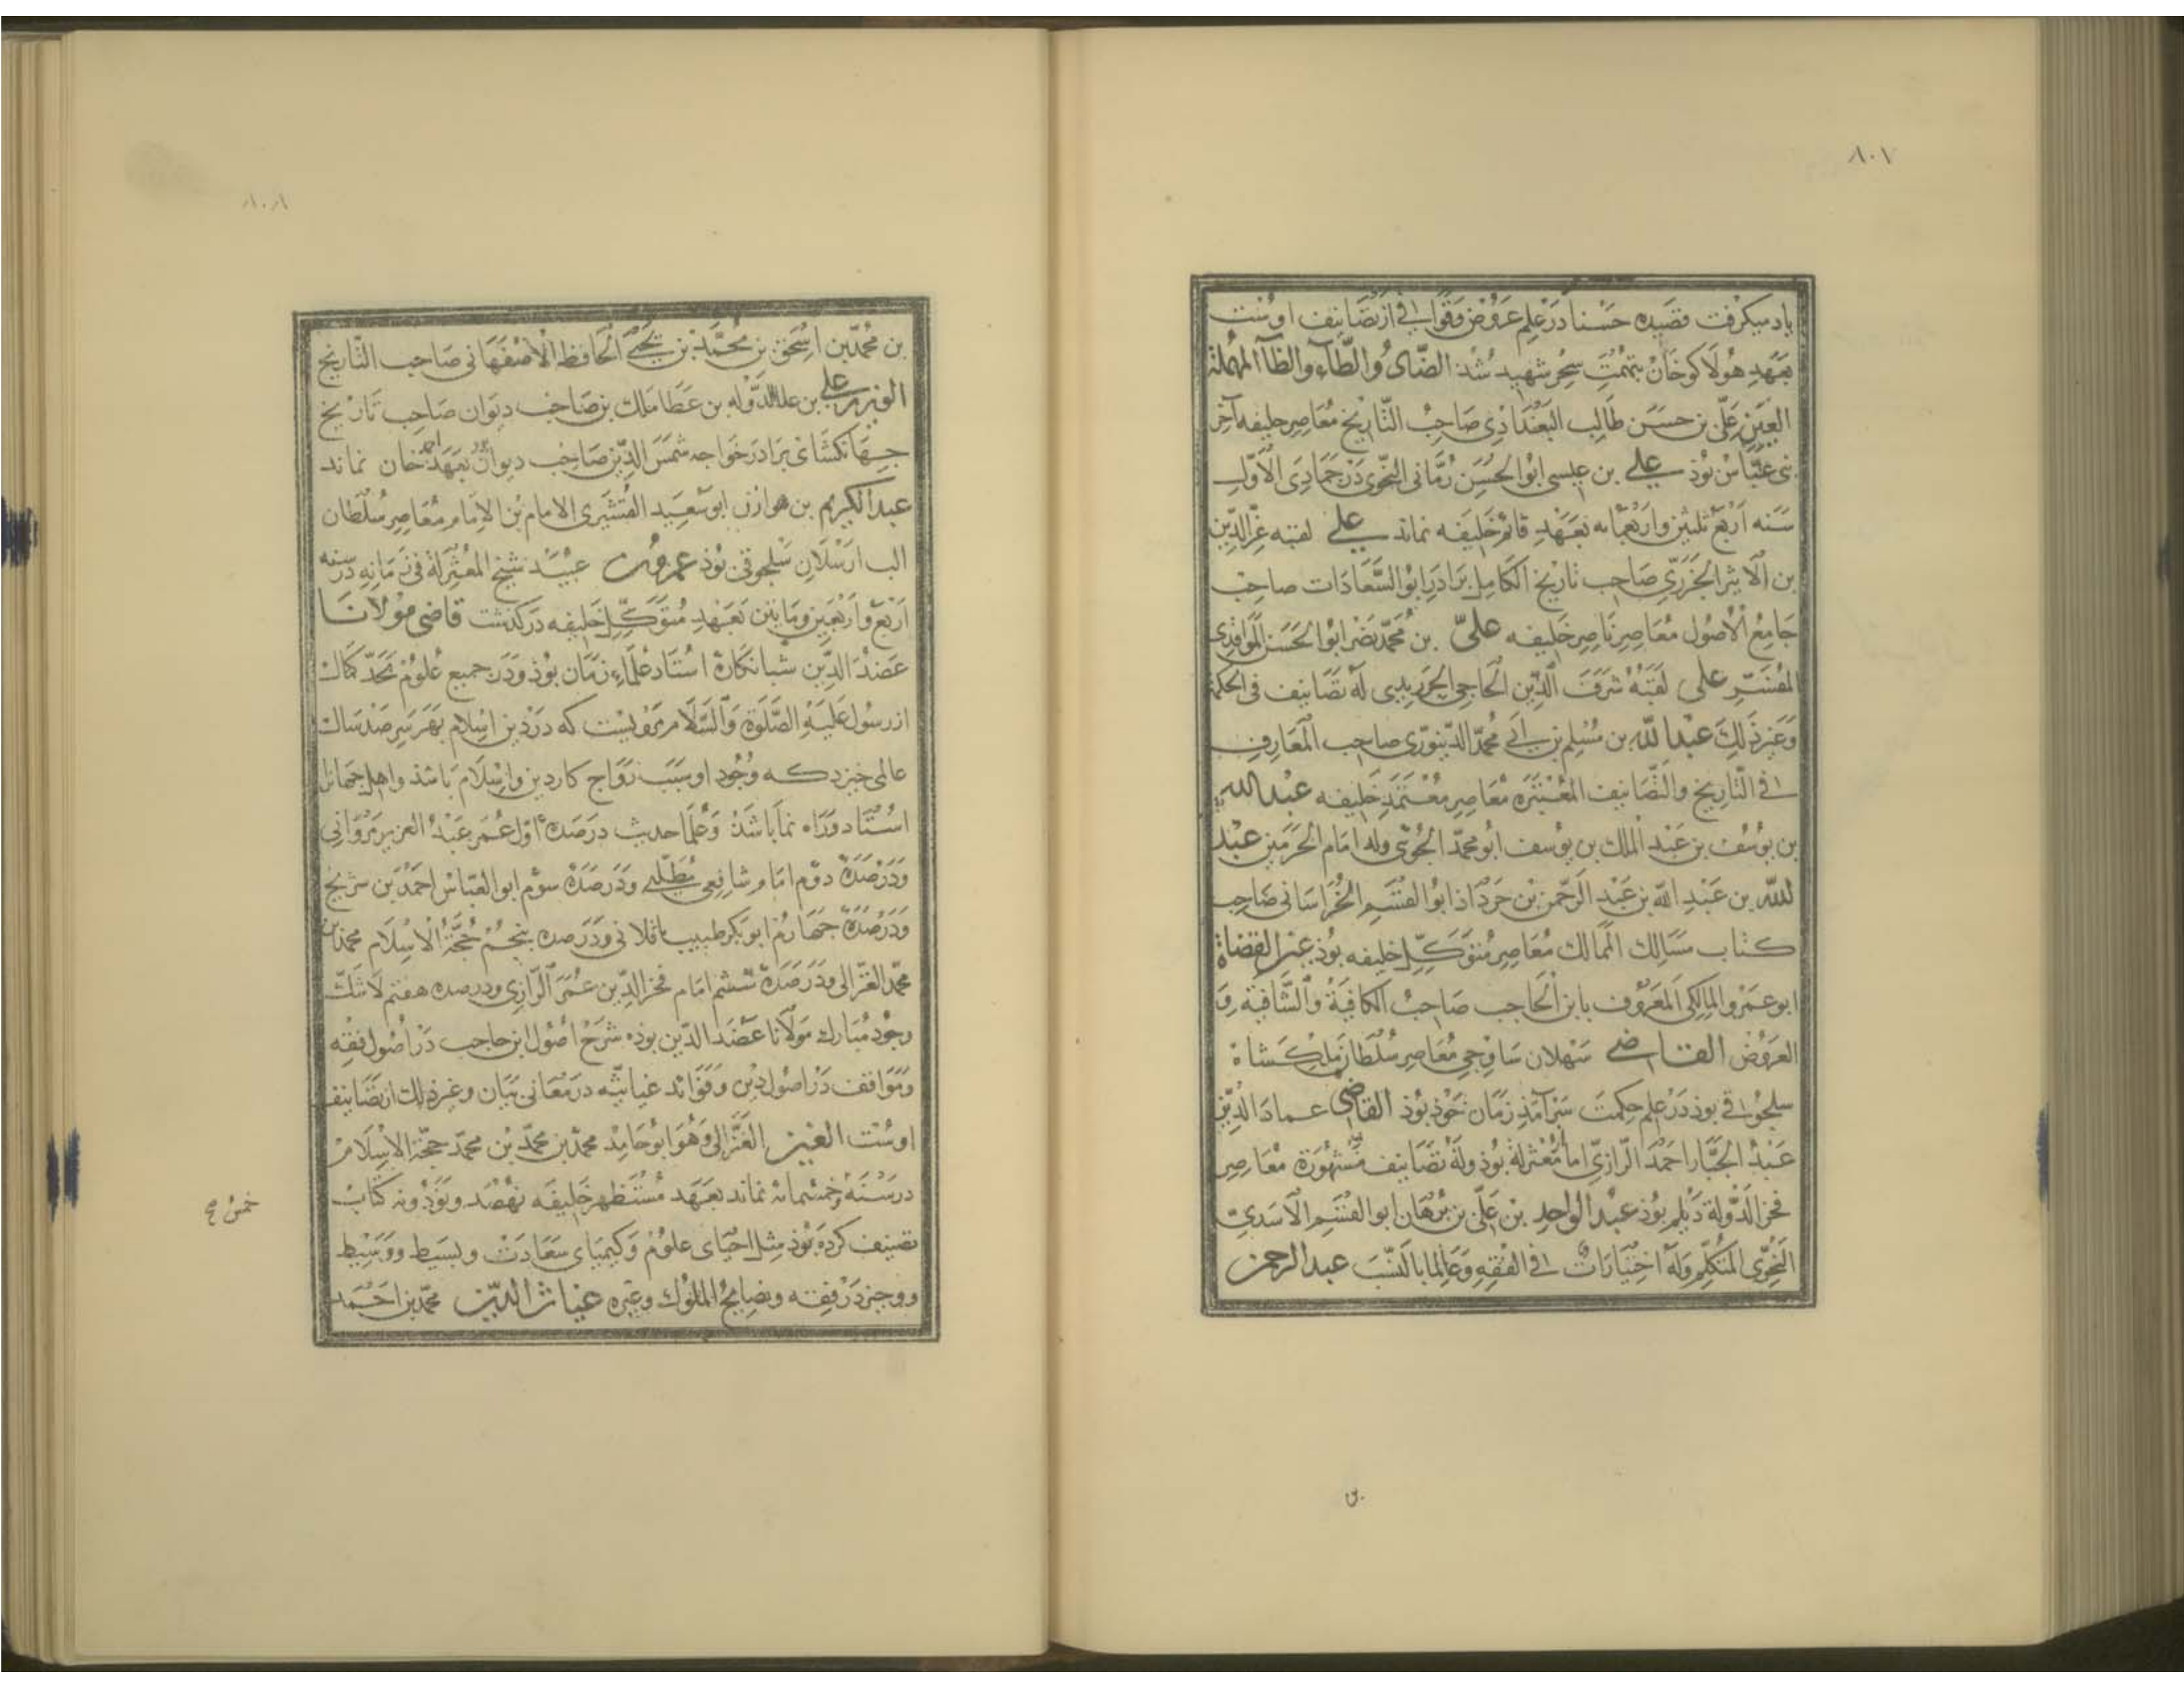 ٨٠٧
یاد میکرفت قصیده حسنا در علم عروض و قوافی از تصانیف اوست
بعهد هولاکو خان بتهمت سحر شهید شد الضاد والطاء والظا المهملة
العین علی بن حسن طالب البغدادی صاحب التاریخ معاصر خلیفه آخر
بنی عباس بوذ علی بن عیسی ابوالحسن رمانی النحوی در جمادی الاول
سنه اربع ثلثین واربعمایه بعهد قائم خلیفه نماند علی لقبه عز الدین
بن الاثیر الجزری صاحب تاریخ الکامل برادر ابو السعادات صاحب
جامع الاصول معاصر ناصر خلیفه علی بن محمد نضر ابوالحسن الموافدی
المفسر علی لقبه شرف الدین الحاجی الجربدی له تصانیف فی الحکمة
وغیر ذلک عبدالله بن مسلم بن ابی محمد الدینوری صاحب المعارف
فی التاریخ والتصانیف المعتبره معاصر معتمد خلیفه عبدالله
بن یوسف بن عبد الملک بن یوسف ابو محمد الجوینی وله امام الحرمین عبد
لله بن عبد الله بن عبد الرحمن بن خرداذ ابوالقسم الخراسانی صاحب
کتاب مسالک الممالک معاصر متوکل خلیفه بوذ عین القضاة
ابو عمرو المالکی المعروف بابن الحاجب صاحب الکافیة والشافیة و
العروض القاضی سهلان ساوجی معاصر سلطان ملکشاه
سلجوقی بوذ در علم حکمت سرآمذ زمان خوذ بوذ القاضی عماد الدین
عبد الجبار احمد الرازی اما معتزله بوذ وله تصانیف مشهورة معاصر
فخر الدولة دیلم بوذ عبد الواحد بن علی بن برهان ابو القسم الاسدی
النحوی المتکلم وله اختیارات فی الفقه وعالما بالنسب عبد الرحمن
٨٠٨
بن محمد بن اسحق بن محمد بن یحیی الحافظ الاصفهانی صاحب التاریخ
الوزیر علی بن علاالدوله بن عطا ملک بن صاحب دیوان صاحب تاریخ
جهانکشای برادر خواجه شمس الدین صاحب دیوان بعهد احمد خان نماند
عبدالکریم بن هوازن ابو سعید القشیری الامام بن الامام معاصر سلطان
الب ارسلان سلجوقی بوذ عمرو بن عبید شیخ المعتزلة فی زمانه در سنه
اربع و اربعین و مایتین بعهد متوکل خلیفه درکذشت قاضی مولانا
عضد الدین شبانکاره استاد علماء زمان بوذ ودر جمیع علوم بحد کمال
از رسول علیه الصلوة والسلام مرویست که در دین اسلام بهر سر صد سال
عالمی خیزد که وجود او سبب رواج کار دین واسلام باشذ واهل جهانرا
استاد وراه نما باشذ وعلما حدیث در صده اول عمر عبد العزیز مروانی
ودر صده دوم امام شافعی مطلبی ودر صده سوم ابوالعباس احمد بن سریج
ودر صده چهارم ابوبکر طبیب باقلانی ودر صده پنجم حجة الاسلام محمد بن
محمد الغزالی ودر صده ششم امام فخر الدین عمر الرازی ودر صده هفتم لاشک
وجود مبارک مولانا عضد الدین بوذه شرح اصول ابن حاجب در اصول فقه
ومواقف در اصول دین وفوائد غیاثیه در معانی بیان وغیر ذلک از تصانیف
اوست الغین الغزالی وهو ابو حامد محمد بن محمد بن محمد حجة الاسلام
در سنه وخمسمائه نماند بعهد مستظهر خلیفه نهصد ونوذ ونه کتاب
تصنیف کرده بوذ مثل احیای علوم وکیمیای سعادت وبسیط ووسیط
ووجیز در فقه ونصایح الملوک وغیره غیاث الدین محمد بن احمد
خمس صح